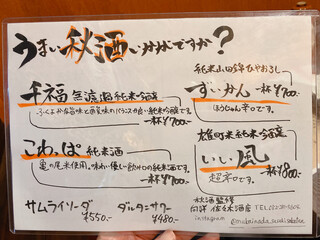 うまい秋酒いかがですか?
千福 無濾過純米吟醸
ふくよかな旨味と酒質味のバランスの良い純米吟醸です。
一杯¥700-
こわっぱ 純米酒
亀の尾米使用。味わい優しい飲み口の純米酒です。
一杯¥700-
サムライソーダ
¥550-
¥480-
純米山田錦ひやおろし
ずいかん
ほうじゅん辛口です。
一杯¥700-
雄町米純米吟醸
いい風
超辛口です。
一杯¥800-
秋酒監修
向洋 佐々木酒店
instagram